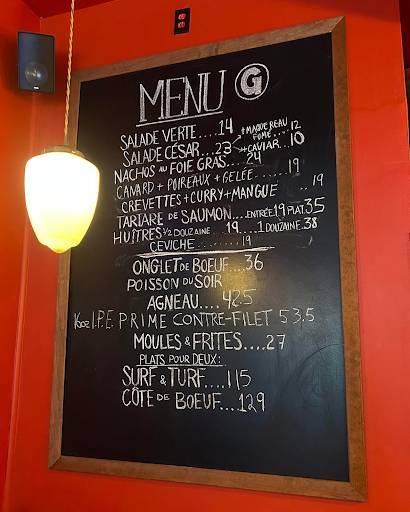 MENU G
SALADE VERTE....14
SALADE CÉSAR...23 + MAQUEREAU FUMÉ....12
+ CAVIAR...10
NACHOS AU FOIE GRAS....24
CANARD + POIREAUX + GELÉE......19
CREVETTES + CURRY + MANGUE ..19
TARTARE DE SAUMON....ENTRÉE 19 PLAT.35
HUÎTRES ½ DOUZAINE 19...1 DOUZAINE.38
CEVICHE ........19
ONGLET DE BOEUF....36
POISSON DU SOIR
AGNEAU....42.5
16oz I.P.E. PRIME CONTRE-FILET 53.5
MOULES & FRITES....27
PLATS POUR DEUX:
SURF & TURF....115
CÔTE DE BOEUF...129